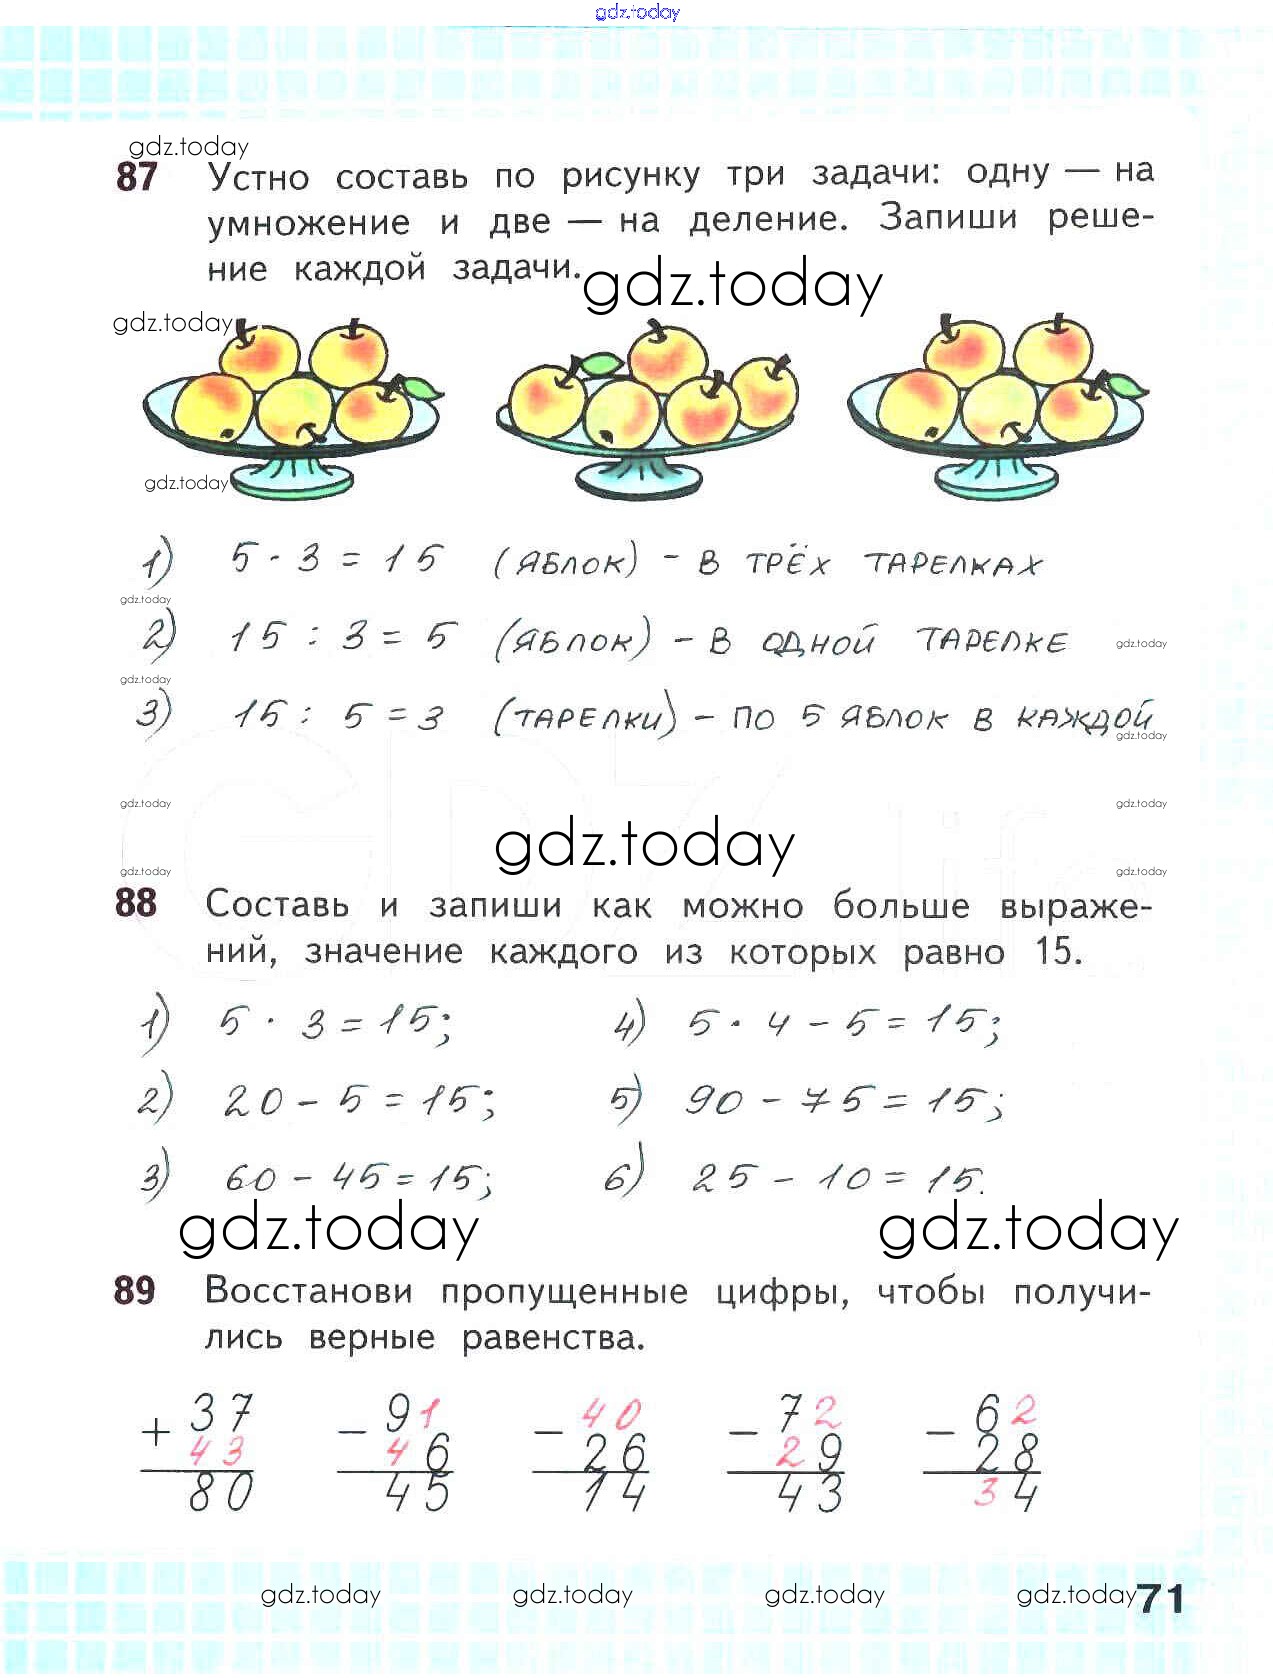 gdz.today
gdz.today
87 Устно составь по рисунку три задачи: одну — на
умножение и две — на деление. Запиши реше-
ние каждой задачи.
gdz.today
gdz.today
gdz.today
1) 5 · 3 = 15 (ЯБЛОК) - В ТРЁХ ТАРЕЛКАХ
gdz.today
2) 15 : 3 = 5 (ЯБЛОК) - В ОДНОЙ ТАРЕЛКЕ
gdz.today
gdz.today
3) 15 : 5 = 3 (ТАРЕЛКИ) - ПО 5 ЯБЛОК В КАЖДОЙ
gdz.today
gdz.today gdz.today
gdz.today
gdz.today gdz.today
88 Составь и запиши как можно больше выраже-
ний, значение каждого из которых равно 15.
1) 5 · 3 = 15; 4) 5 · 4 - 5 = 15;
2) 20 - 5 = 15; 5) 90 - 75 = 15;
3) 60 - 45 = 15; 6) 25 - 10 = 15.
gdz.today gdz.today
89 Восстанови пропущенные цифры, чтобы получи-
лись верные равенства.
+ 37 - 91 - 40 - 72 - 62
43 46 26 29 28
80 45 14 43 34
gdz.today gdz.today gdz.today gdz.today 71